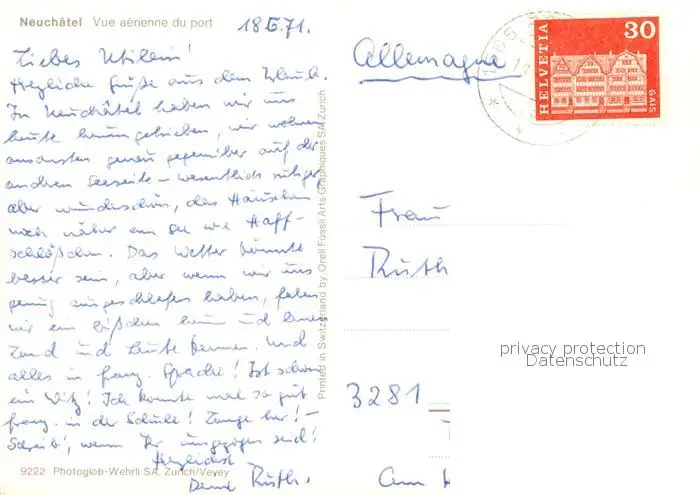 Neuchâtel Vue aérienne du port
18.6.71.
Liebes
Herzliche Grüße aus dem Urlaub.
In Neuchâtel haben wir uns
heute herumgetrieben, wir wohnen
ansonsten genau gegenüber auf der
andren Seeseite – wesentlich ruhiger
aber wunderschön, das Häuschen
noch näher am See wie Haff-
schlößchen. Das Wetter könnte
besser sein, aber wenn wir uns
genug ausgeschlafen haben, fahren
wir ein bißchen herum und lernen
Land und Leute kennen. Und
alles in franz. Sprache! Ist schon
ein Witz! Ich konnte mal so gut
franz. in der Schule! Lange her! –
Schreibt, wenn Ihr umgezogen seid!
Herzlichst
Deine Ruth.
9222 Photoglob-Wehrli SA, Zürich/Vevey
Printed in Switzerland by Orell Füssli Arts Graphiques SA Zürich
Allemagne
HELVETIA
30
GAIS
Frau
Ruth
3281
Am
privacy protection
Datenschutz